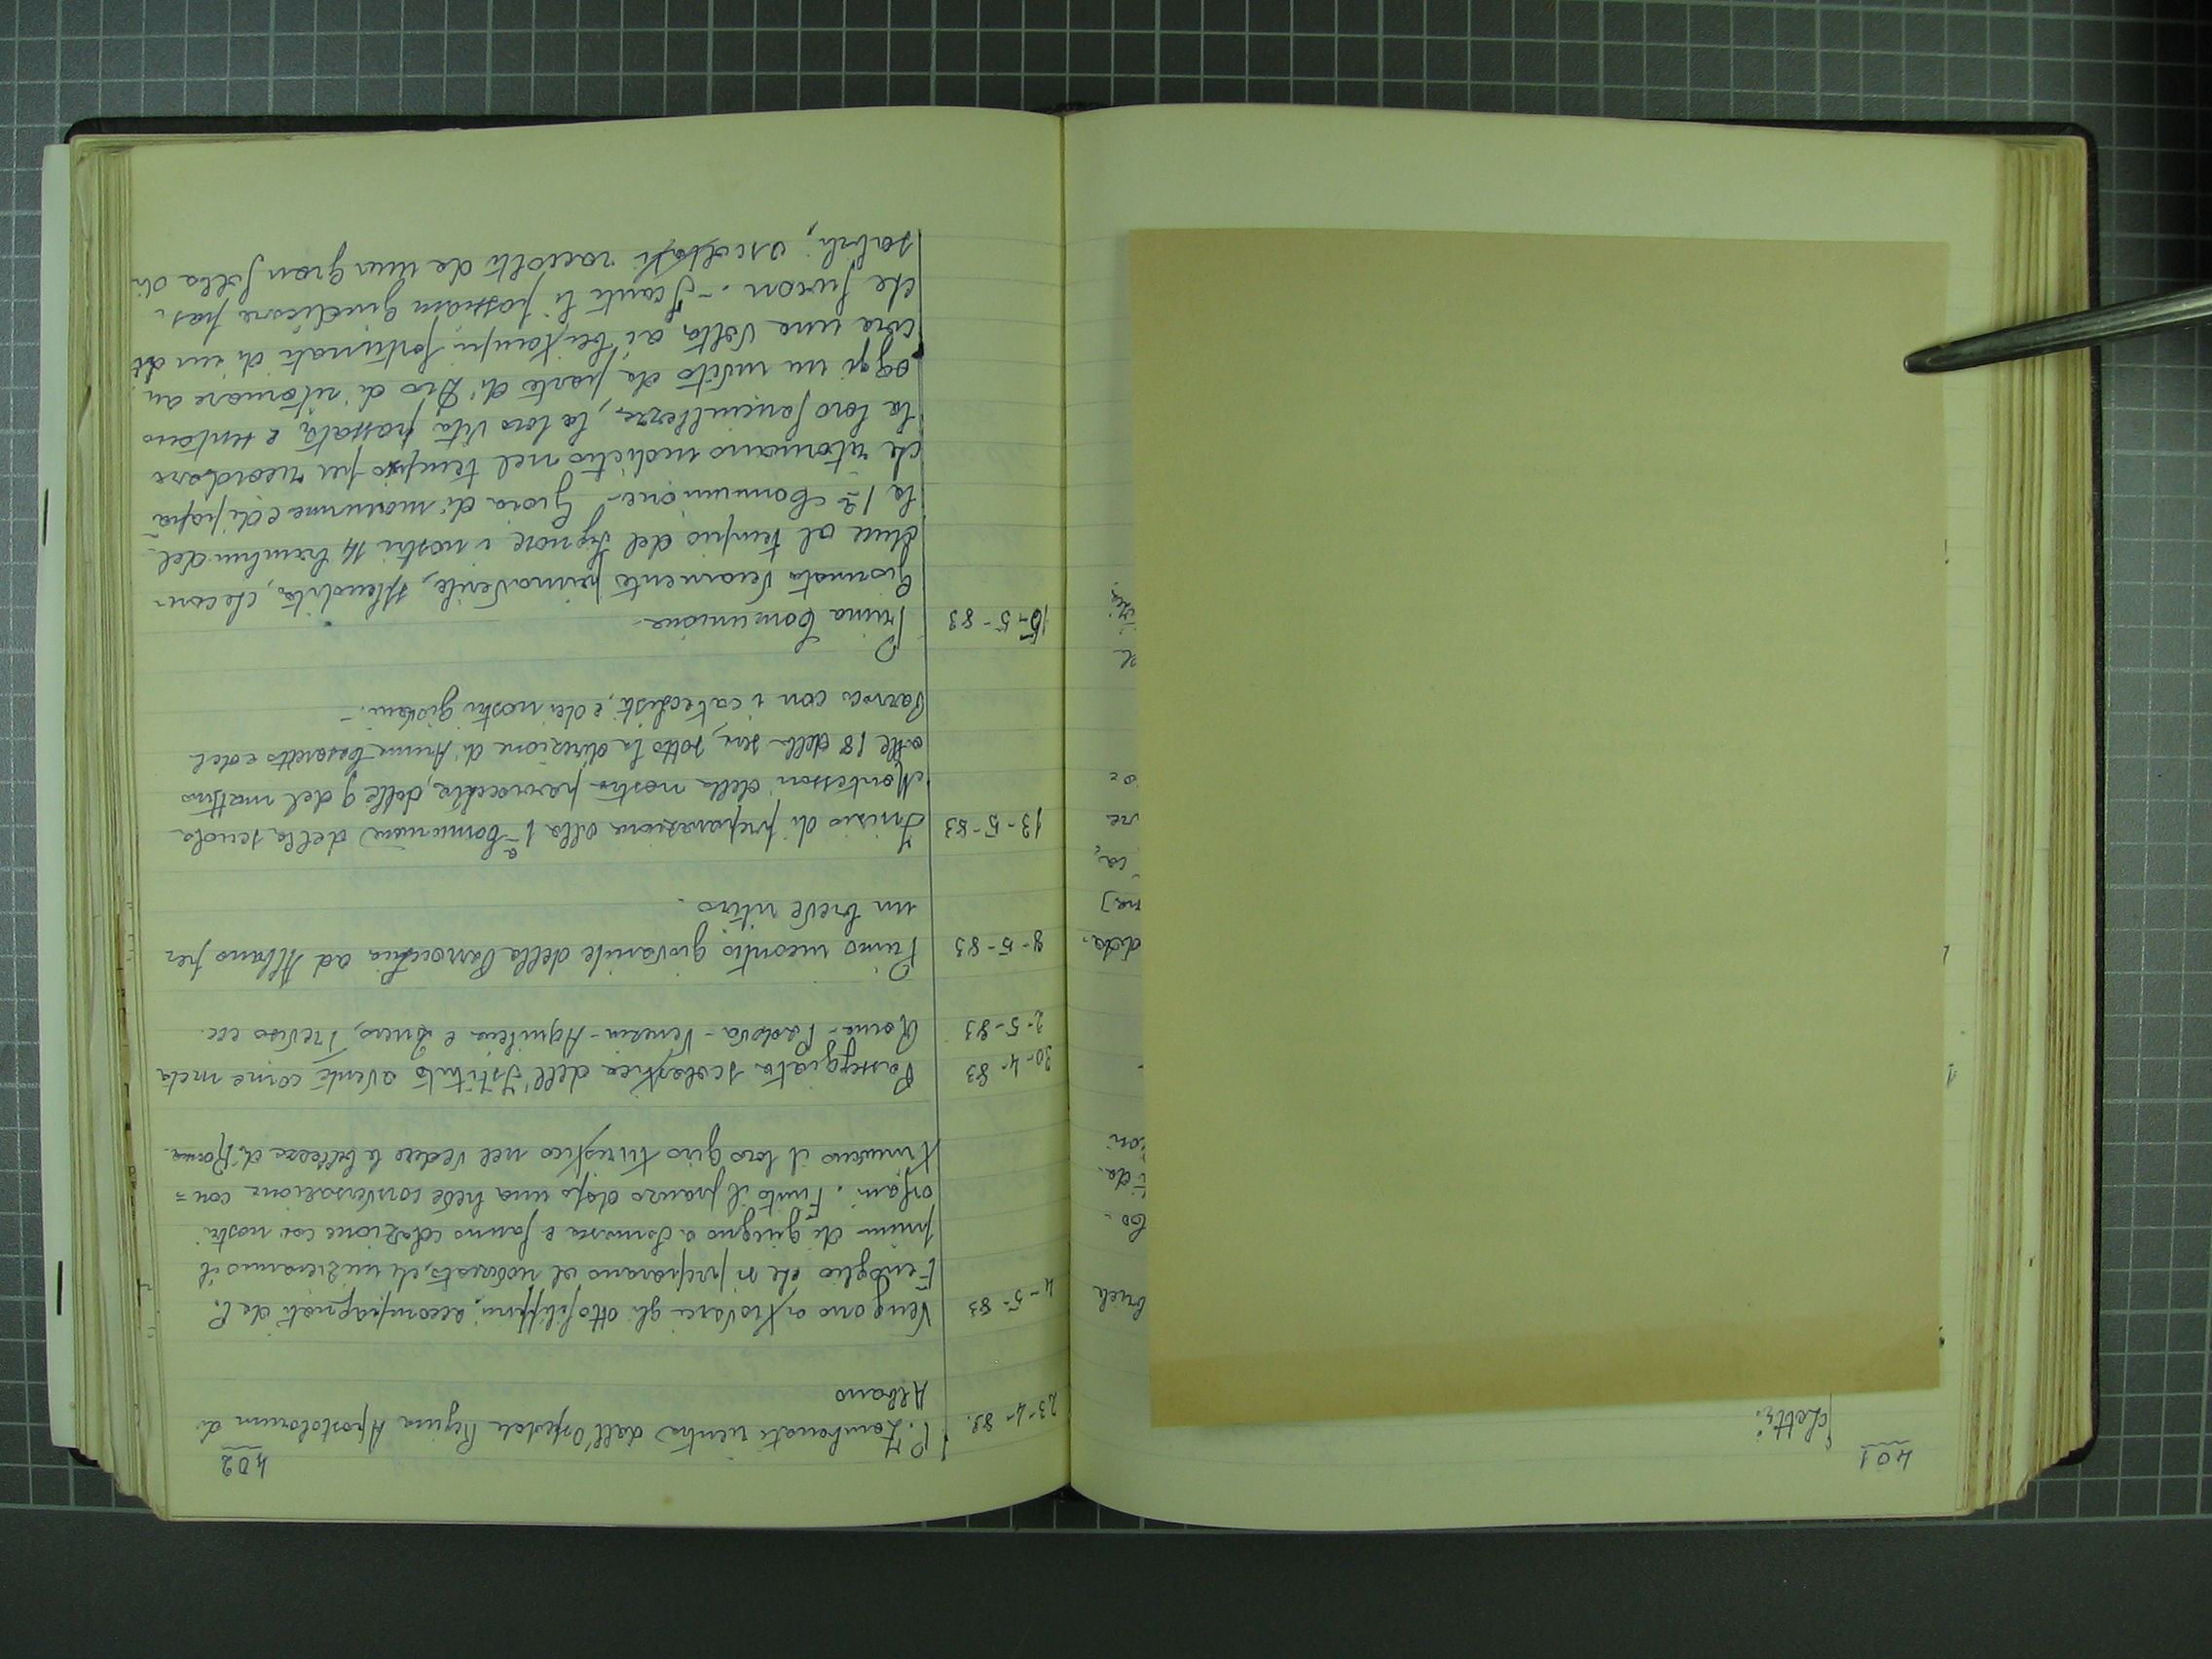 401
Eletti
402
23-4-83. P. Zambonati rientra dall'Ospedale Regina Apostolorum di
Albano
4-5-83 Vengono a trovarci gli otto filippini, accompagnati da P.
che si preparano al noviziato, che inizieranno il
primi di giugno a Somasca e fanno colazione coi nostri
orfani. Finito il pranzo dopo una breve conversazione con=
tinuano il loro giro turistico nel vedere le bellezze di Roma.
30-4-83 Passeggiata scolastica dell'Istituto avente come meta
2-5-83 Roma-Padova-Venezia-Aquileia e Quero, Treviso ecc.
8-5-83 Primo incontro giovanile della Parrocchia ad Albano per
un breve ritiro.
13-5-83 Inizio di preparazione alla 1ª Comunione della scuola
Montessori della nostra parrocchia, dalle 9 del mattino
alle 18 della sera, sotto la direzione di Anna e del
Parroco con i catechisti e dei nostri giovani.-
15-5-83 Prima Comunione-
Giornata veramente primaverile, splendida, che con-
duce al tempio del Signore i nostri 14 bambini del-
la 1ª Comunione- Gioia di mamme e di papà
che ritornano indietro nel tempo per ricordare
la loro fanciullezza, la loro vita passata e sentono
oggi un invito da parte di Dio di ritornare an
cora una volta ai bei tempi fortunati di un dì
che furon.- I canti li possiam giudicare pas-
sabili, ascoltati raccolti da una gran folla di